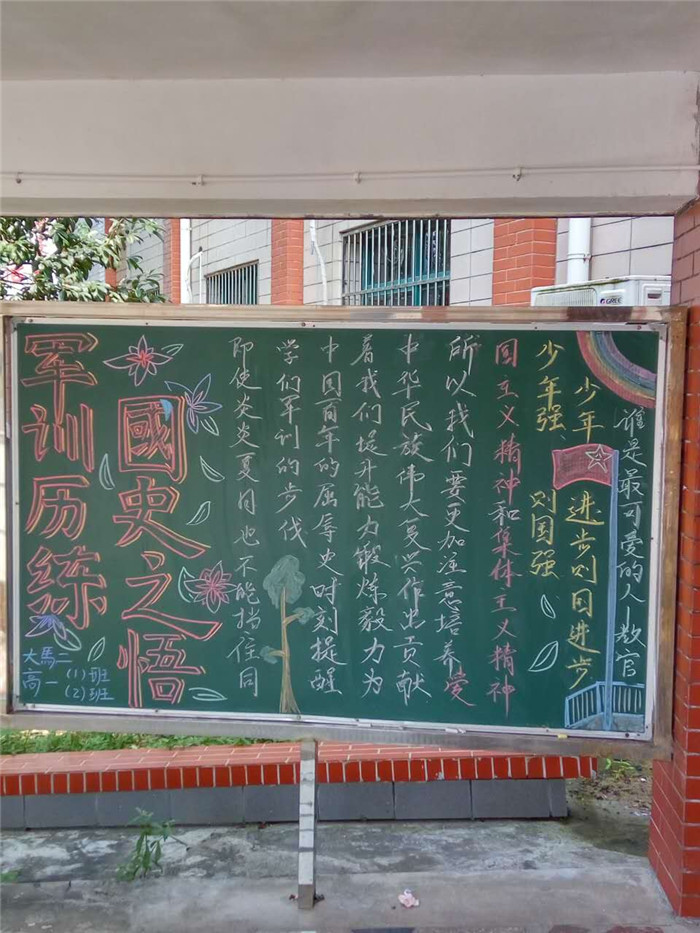 军训历练
國史之悟
大馬二
高一(1)班
(2)班
即使炎炎夏日也不能挡住同
学们军训的步伐
中国百年的屈辱史时刻提醒
着我们提升能力锻炼毅力为
中华民族伟大复兴作出贡献
所以我们要更加注意培养爱
国主义精神和集体主义精神
少年强 则国强
少年 进步则国进步
谁是最可爱的人—教官
GREE